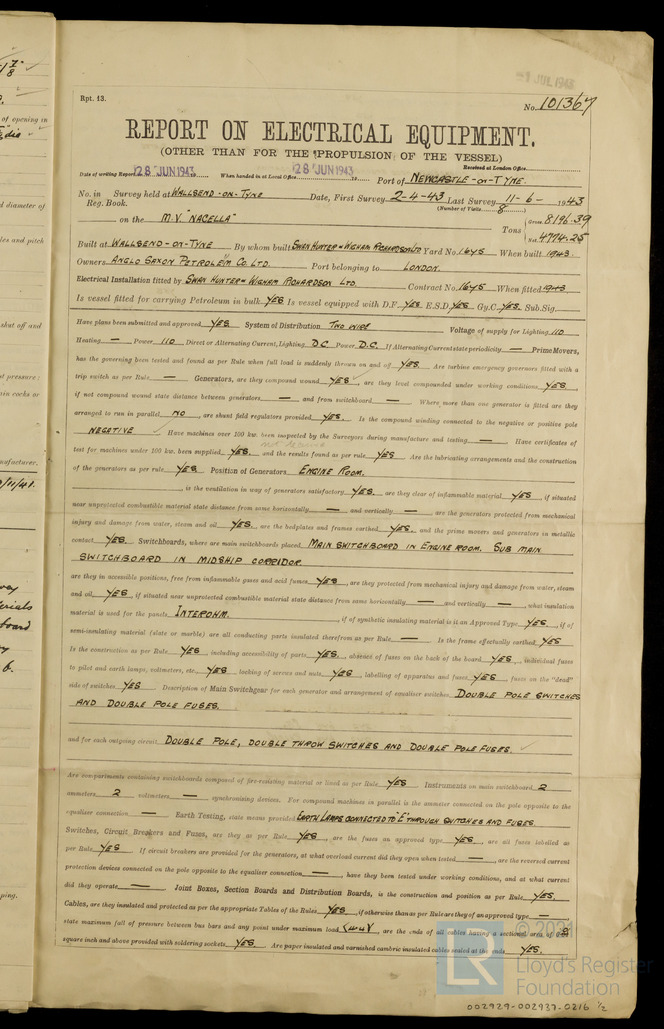 -1 JUL 1943
Rpt. 13.
No. 101367
REPORT ON ELECTRICAL EQUIPMENT.
(OTHER THAN FOR THE PROPULSION OF THE VESSEL)
Received at London Office
Date of writing Report 28 JUN 1943 When handed in at Local Office 28 JUN 1943 19 Port of NEWCASTLE-ON-TYNE.
No. in Survey held at WALLSEND-ON-TYNE Date, First Survey 2-4-43 Last Survey 11-6- 1943
Reg. Book. (Number of Visits 8)
on the M.V. "NACELLA" Tons { Gross 8196.39 Net 4774.25
Built at WALLSEND-ON-TYNE By whom built SWAN HUNTER & WIGHAM RICHARDSON LTD Yard No. 1645 When built 1943.
Owners ANGLO SAXON PETROLEUM CO. LTD. Port belonging to LONDON.
Electrical Installation fitted by SWAN HUNTER & WIGHAM RICHARDSON LTD. Contract No. 1645 When fitted 1943
Is vessel fitted for carrying Petroleum in bulk YES Is vessel equipped with D.F. YES E.S.D. YES Gy.C. YES. Sub.Sig.
Have plans been submitted and approved YES System of Distribution TWO WIRE Voltage of supply for Lighting 110
Heating — Power 110 Direct or Alternating Current, Lighting D.C Power D.C. If Alternating Current state periodicity — Prime Movers,
has the governing been tested and found as per Rule when full load is suddenly thrown on and off YES. Are turbine emergency governors fitted with a
trip switch as per Rule — Generators, are they compound wound YES, are they level compounded under working conditions YES,
if not compound wound state distance between generators — and from switchboard — Where more than one generator is fitted are they
arranged to run in parallel NO, are shunt field regulators provided YES. Is the compound winding connected to the negative or positive pole
NEGATIVE Have machines over 100 kw. been inspected by the Surveyors during manufacture and testing — Have certificates of
test for machines under 100 kw. been supplied YES and the results found as per rule YES Are the lubricating arrangements and the construction
of the generators as per rule YES Position of Generators ENGINE ROOM.
, is the ventilation in way of generators satisfactory YES. are they clear of inflammable material YES, if situated
near unprotected combustible material state distance from same horizontally — and vertically — are the generators protected from mechanical
injury and damage from water, steam and oil YES, are the bedplates and frames earthed YES. and the prime movers and generators in metallic
contact YES. Switchboards, where are main switchboards placed MAIN SWITCHBOARD IN ENGINE ROOM. SUB MAIN
SWITCHBOARD IN MIDSHIP CORRIDOR
are they in accessible positions, free from inflammable gases and acid fumes YES, are they protected from mechanical injury and damage from water, steam
and oil YES if situated near unprotected combustible material state distance from same horizontally — and vertically —, what insulation
material is used for the panels INTEROHM., if of synthetic insulating material is it an Approved Type YES, if of
semi-insulating material (slate or marble) are all conducting parts insulated therefrom as per Rule — Is the frame effectually earthed YES
Is the construction as per Rule YES including accessibility of parts YES, absence of fuses on the back of the board YES, individual fuses
to pilot and earth lamps, voltmeters, etc. YES locking of screws and nuts YES, labelling of apparatus and fuses YES fuses on the "dead"
side of switches YES Description of Main Switchgear for each generator and arrangement of equaliser switches DOUBLE POLE SWITCHES
AND DOUBLE POLE FUSES.
and for each outgoing circuit DOUBLE POLE, DOUBLE THROW SWITCHES AND DOUBLE POLE FUSES.
Are compartments containing switchboards composed of fire-resisting material or lined as per Rule YES Instruments on main switchboard 2
ammeters 2 voltmeters — synchronising devices. For compound machines in parallel is the ammeter connected on the pole opposite to the
equaliser connection — Earth Testing, state means provided EARTH LAMPS CONNECTED TO E THROUGH SWITCHES AND FUSES
Switches, Circuit Breakers and Fuses, are they as per Rule YES, are the fuses an approved type YES, are all fuses labelled as
per Rule YES If circuit breakers are provided for the generators, at what overload current did they open when tested —, are the reversed current
protection devices connected on the pole opposite to the equaliser connection —, have they been tested under working conditions, and at what current
did they operate — Joint Boxes, Section Boards and Distribution Boards, is the construction and position as per Rule YES.
Cables, are they insulated and protected as per the appropriate Tables of the Rules YES, if otherwise than as per Rule are they of an approved type —
state maximum fall of pressure between bus bars and any point under maximum load, are the ends of all cables having a sectional area of
square inch and above provided with soldering sockets YES. Are paper insulated and varnished cambric insulated cables sealed at the ends YES.
© 2021
LR
Lloyd's Register
Foundation
002929-002937-0216 1/2